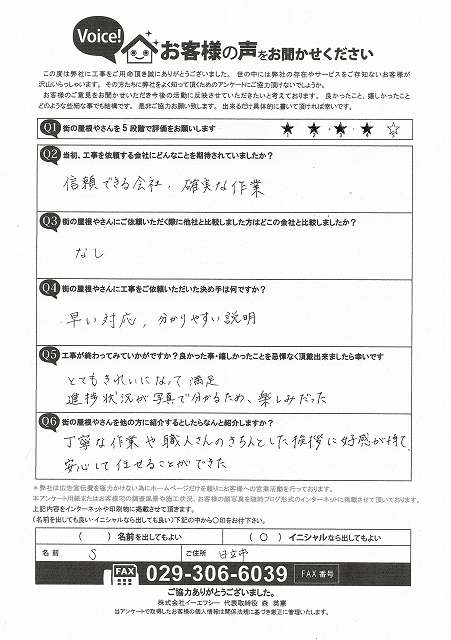 Voice!
お客様の声をお聞かせください
この度は弊社に工事をご用命頂き誠にありがとうございました。世の中には弊社の存在やサービスをご存知ないお客様が
沢山いらっしゃいます。その方たちに弊社をよく知って頂くためのアンケートにご協力頂けないでしょうか。
お客様のご意見をお聞かせいただき今後の活動に反映させていただきたいと考えております。良かったこと、嬉しかったこと
どのような些細な事でも結構です。是非ご協力お願い致します。出来るだけ具体的に書いて頂ければ幸いです。
Q1 街の屋根やさんを5段階で評価をお願いします ★ ★ ★ ★ ☆
Q2 当初、工事を依頼する会社にどんなことを期待されていましたか?
信頼できる会社、確実な作業
Q3 街の屋根やさんにご依頼いただく際に他社と比較しました方はどこの会社と比較しましたか?
なし
Q4 街の屋根やさんに工事をご依頼いただいた決め手は何ですか?
早い対応、分かりやすい説明
Q5 工事が終わってみていかがですか?良かった事・嬉しかったことを忌憚なく頂戴出来ましたら幸いです
とてもきれいになって満足
進捗状況が写真で分かるため、楽しみだった
Q6 街の屋根やさんを他の方に紹介するとしたらなんと紹介しますか?
丁寧な作業や職人さんのきちんとした挨拶に好感が持て
安心して任せることができた
＊弊社は広告宣伝費を極力かけない為にホームページだけを頼りにお客様への営業活動を行っております。
本アンケート用紙またはお客様宅の調査風景や施工状況、お客様の顔写真を随時ブログ形式のインターネットに掲載させて頂いております。
上記内容をインターネットや印刷物に掲載させて頂きます。
(名前を出しても良い・イニシャルなら出しても良い)下記の中から〇印をお付下さい。
( ) 名前を出してもよい ( 〇 ) イニシャルなら出してもよい
名前 S ご住所 日立市
FAX 029-306-6039 FAX番号
ご協力ありがとうございました。
株式会社イーエフシー 代表取締役 森 英憲
当アンケートで取得したお客様の個人情報は関係法規に基づき厳正に管理いたします。